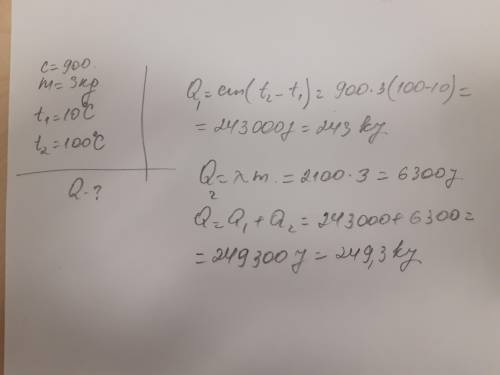 c=900.
m=3кg
t₁=10°C
t₂=100°C
Q-?
Q₁=cm(t₂-t₁)=900·3(100-10)=
=243000J=243 kJ.
Q₂=λm.=2100·3=6300J
Q=Q₁+Q₂=243000+6300=
=249300J=249,3kJ